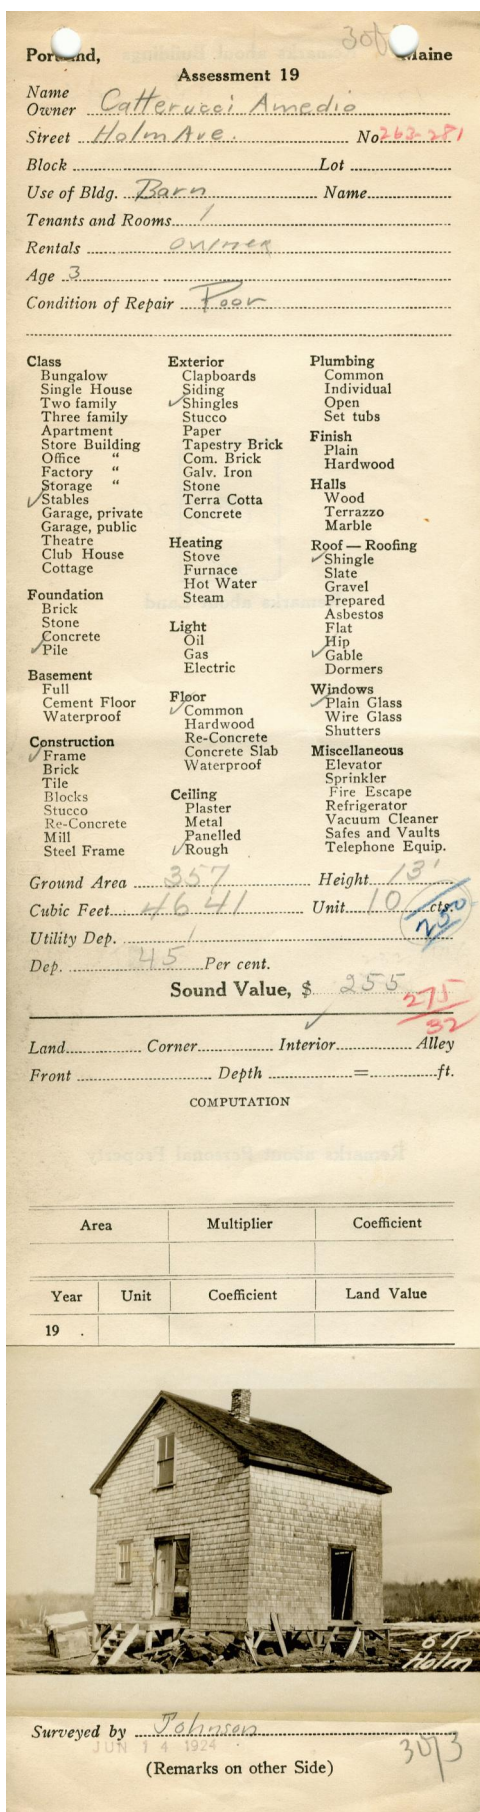 Portland, Maine
Assessment 19
Name
Owner Catterucci Amedio
Street Holm Ave. No 263-281
Block Lot
Use of Bldg. Barn Name
Tenants and Rooms 1
Rentals owner
Age 3
Condition of Repair Poor
Class
Bungalow
Single House
Two family
Three family
Apartment
Store Building
Office "
Factory "
Storage "
✓ Stables
Garage, private
Garage, public
Theatre
Club House
Cottage
Foundation
Brick
Stone
Concrete
✓ Pile
Basement
Full
Cement Floor
Waterproof
Construction
✓ Frame
Brick
Tile
Blocks
Stucco
Re-Concrete
Mill
Steel Frame
Exterior
Clapboards
Siding
✓ Shingles
Stucco
Paper
Tapestry Brick
Com. Brick
Galv. Iron
Stone
Terra Cotta
Concrete
Heating
Stove
Furnace
Hot Water
Steam
Light
Oil
Gas
Electric
Floor
✓ Common
Hardwood
Re-Concrete
Concrete Slab
Waterproof
Ceiling
Plaster
Metal
Panelled
✓ Rough
Plumbing
Common
Individual
Open
Set tubs
Finish
Plain
Hardwood
Halls
Wood
Terrazzo
Marble
Roof — Roofing
✓ Shingle
Slate
Gravel
Prepared
Asbestos
Flat
Hip
✓ Gable
Dormers
Windows
✓ Plain Glass
Wire Glass
Shutters
Miscellaneous
Elevator
Sprinkler
Fire Escape
Refrigerator
Vacuum Cleaner
Safes and Vaults
Telephone Equip.
Ground Area 357 Height 13'
Cubic Feet 4641 Unit 10 cts.
250
Utility Dep.
Dep. 45 Per cent.
Sound Value, $ 255
275
32
Land Corner Interior ✓ Alley
Front Depth = ft.
COMPUTATION
Area Multiplier Coefficient
Year Unit Coefficient Land Value
19 .
6 R
Holm
Surveyed by Johnson
JUN 14 1924
(Remarks on other Side)